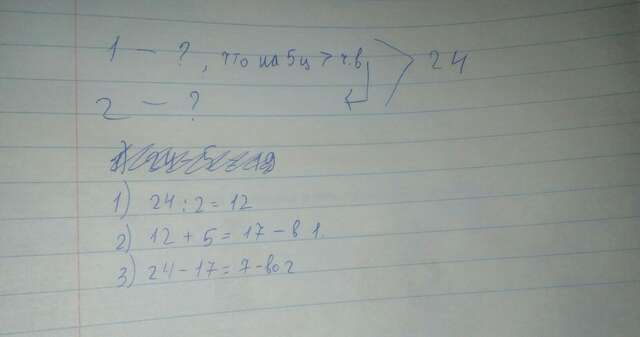 1 – ?, что на 5ц > ч.в 24
2 – ?
1) 24 : 2 = 12
2) 12 + 5 = 17 – в 1.
3) 24 – 17 = 7 – во 2